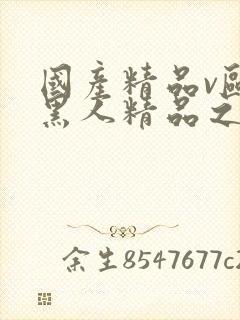 國產精品v區
黑人精品之
余生8547677c2